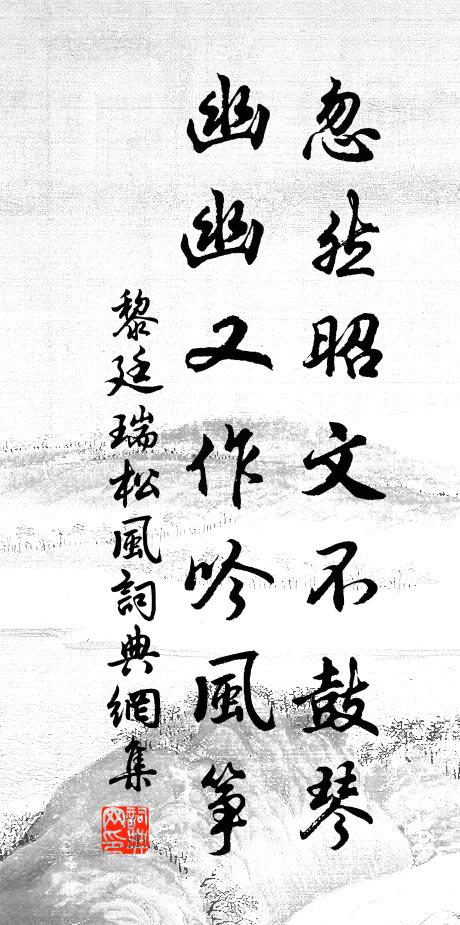 忽然昭文不鼓琴
幽幽又作吟風箏
黎廷瑞松風詞典網集